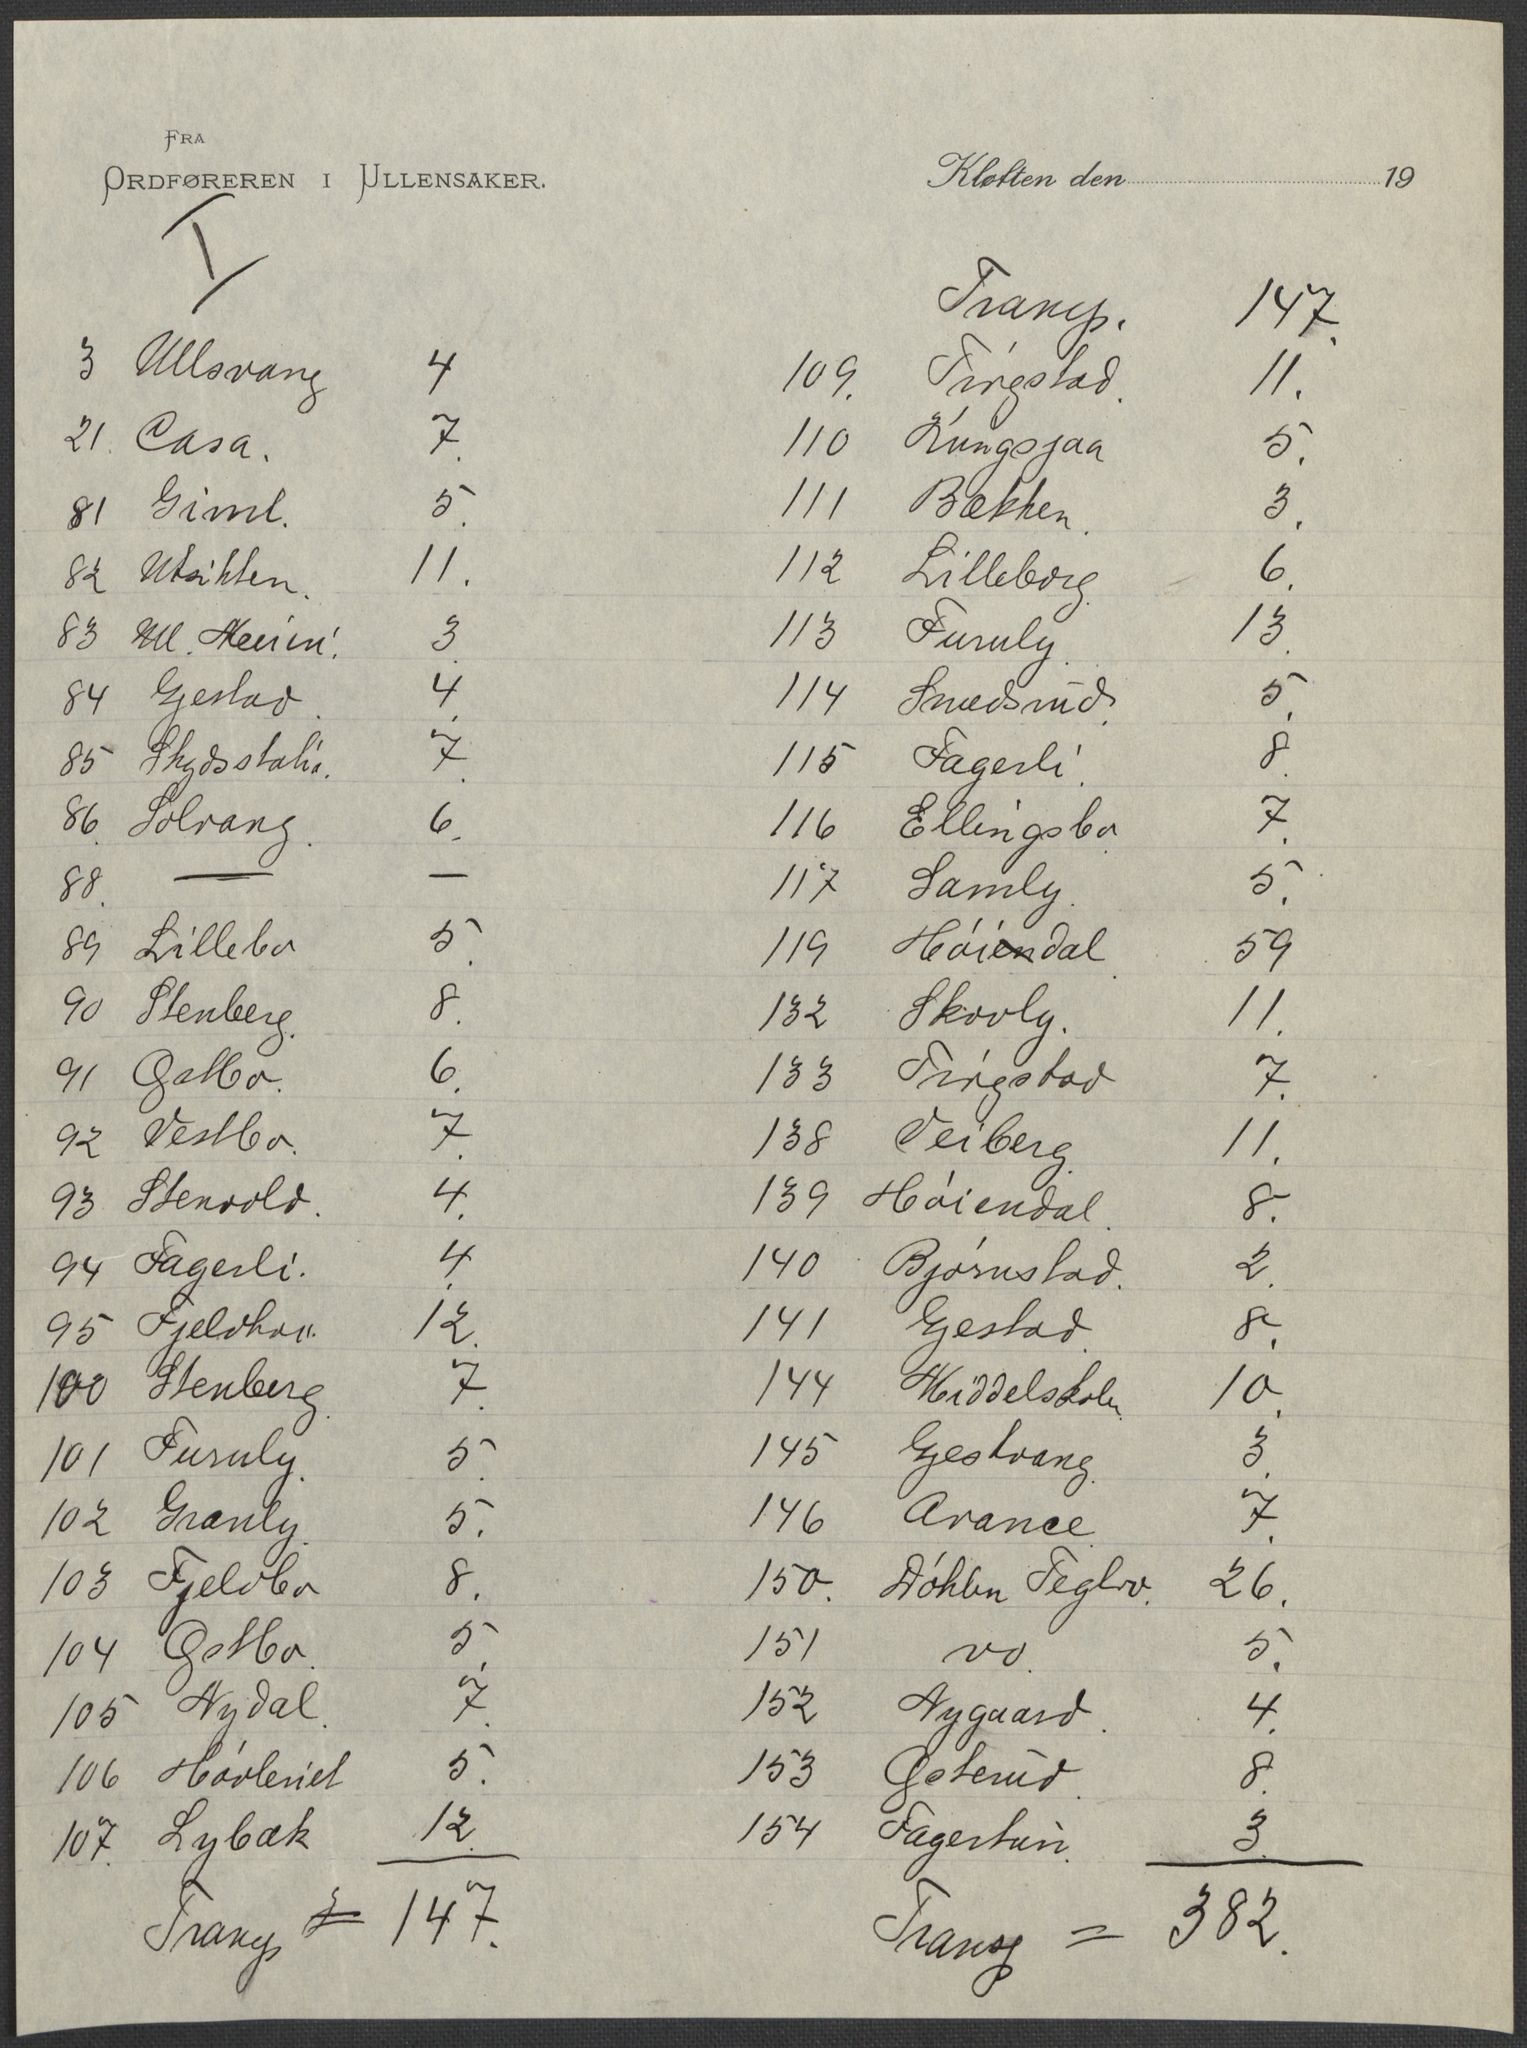 FRA
ORDFØREREN I ULLENSAKER.
Kløften den 19
I
3 Ullsvang 4
21. Casa. 7.
81 Giml. 5.
82 Utsikten. 11.
83 Ull. 3.
84 Gjestad. 4.
85 Skydsstatio. 7.
86. Solvang. 6.
88. — —
89 Lillebo 5.
90 Stenberg. 8.
91 Østbo. 6.
92 Vestbo. 7.
93 Stenvold. 4.
94 Fagerli. 4.
95 12.
100 Stenberg. 7.
101 Furuly. 5.
102 Granly. 5.
103 Fjeldbo 8.
104 Østbo. 5.
105 Nydal. 7.
106 Høvleriet 5.
107. Lybæk 12
Transp = 147.
Transp. 147.
109. Tingstad. 11.
110 Kungsjaa 5.
111 Bækken. 3.
112 Lilleborg. 6.
113 Furuly. 13.
114 Smedsrud. 5.
115 Fagerli. 8.
116 Ellingsbo 7.
117 Samly. 5.
119 Høiendal 59
132 Skovly. 11.
133 Tingstad 7.
138 Veiberg. 11.
139 Høiendal. 8.
140 Bjørnstad. 2.
141 Gjestad. 8.
144 Middelskolen. 10.
145 Gjestvang. 3.
146 Avance. 7.
150. Døhlen Teglv. 26.
151 do. 5.
152 Nygaard. 4.
153 Østerud. 8.
154 Fagertun. 3.
Transp = 382.